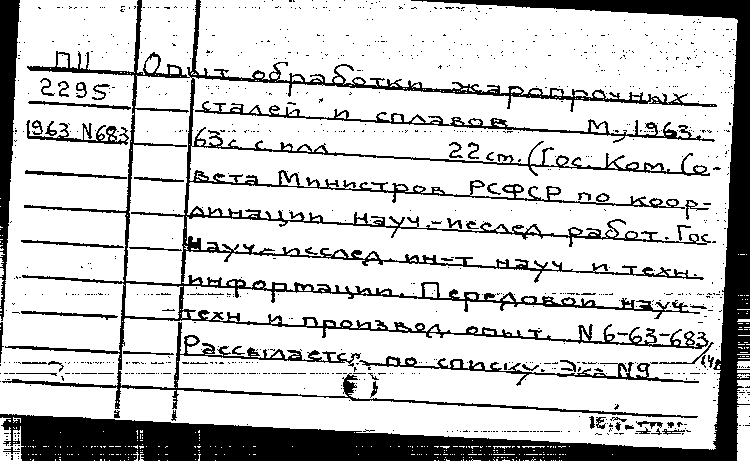 П11
2295
1963 N683
Опыт обработки жаропрочных
сталей и сплавов М., 1963.-
63 с. с илл. 22 см. (Гос. Ком. Со-
вета Министров РСФСР по коор-
динации науч.-исслед. работ. Гос.
Науч.-исслед. ин-т науч. и техн.
информации. Передовой науч-
техн. и производ. опыт. N 6-63-683/
Рассылается по списку. Экз N9